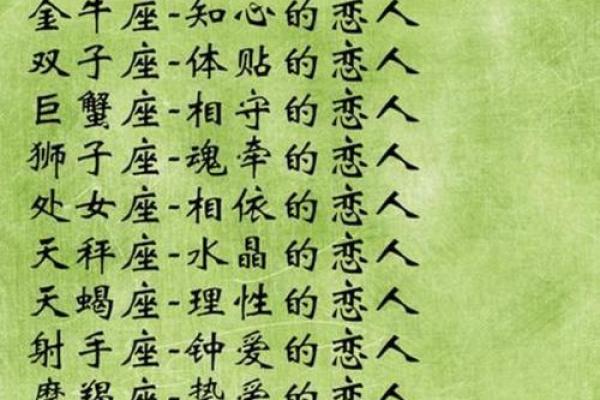 金牛座-知心的恋人
双子座-体贴的恋人
巨蟹座-相守的恋人
狮子座-魂牵的恋人
处女座-相依的恋人
天秤座-水晶的恋人
天蝎座-理性的恋人
射手座-钟爱的恋人
摩羯座-挚爱的恋人